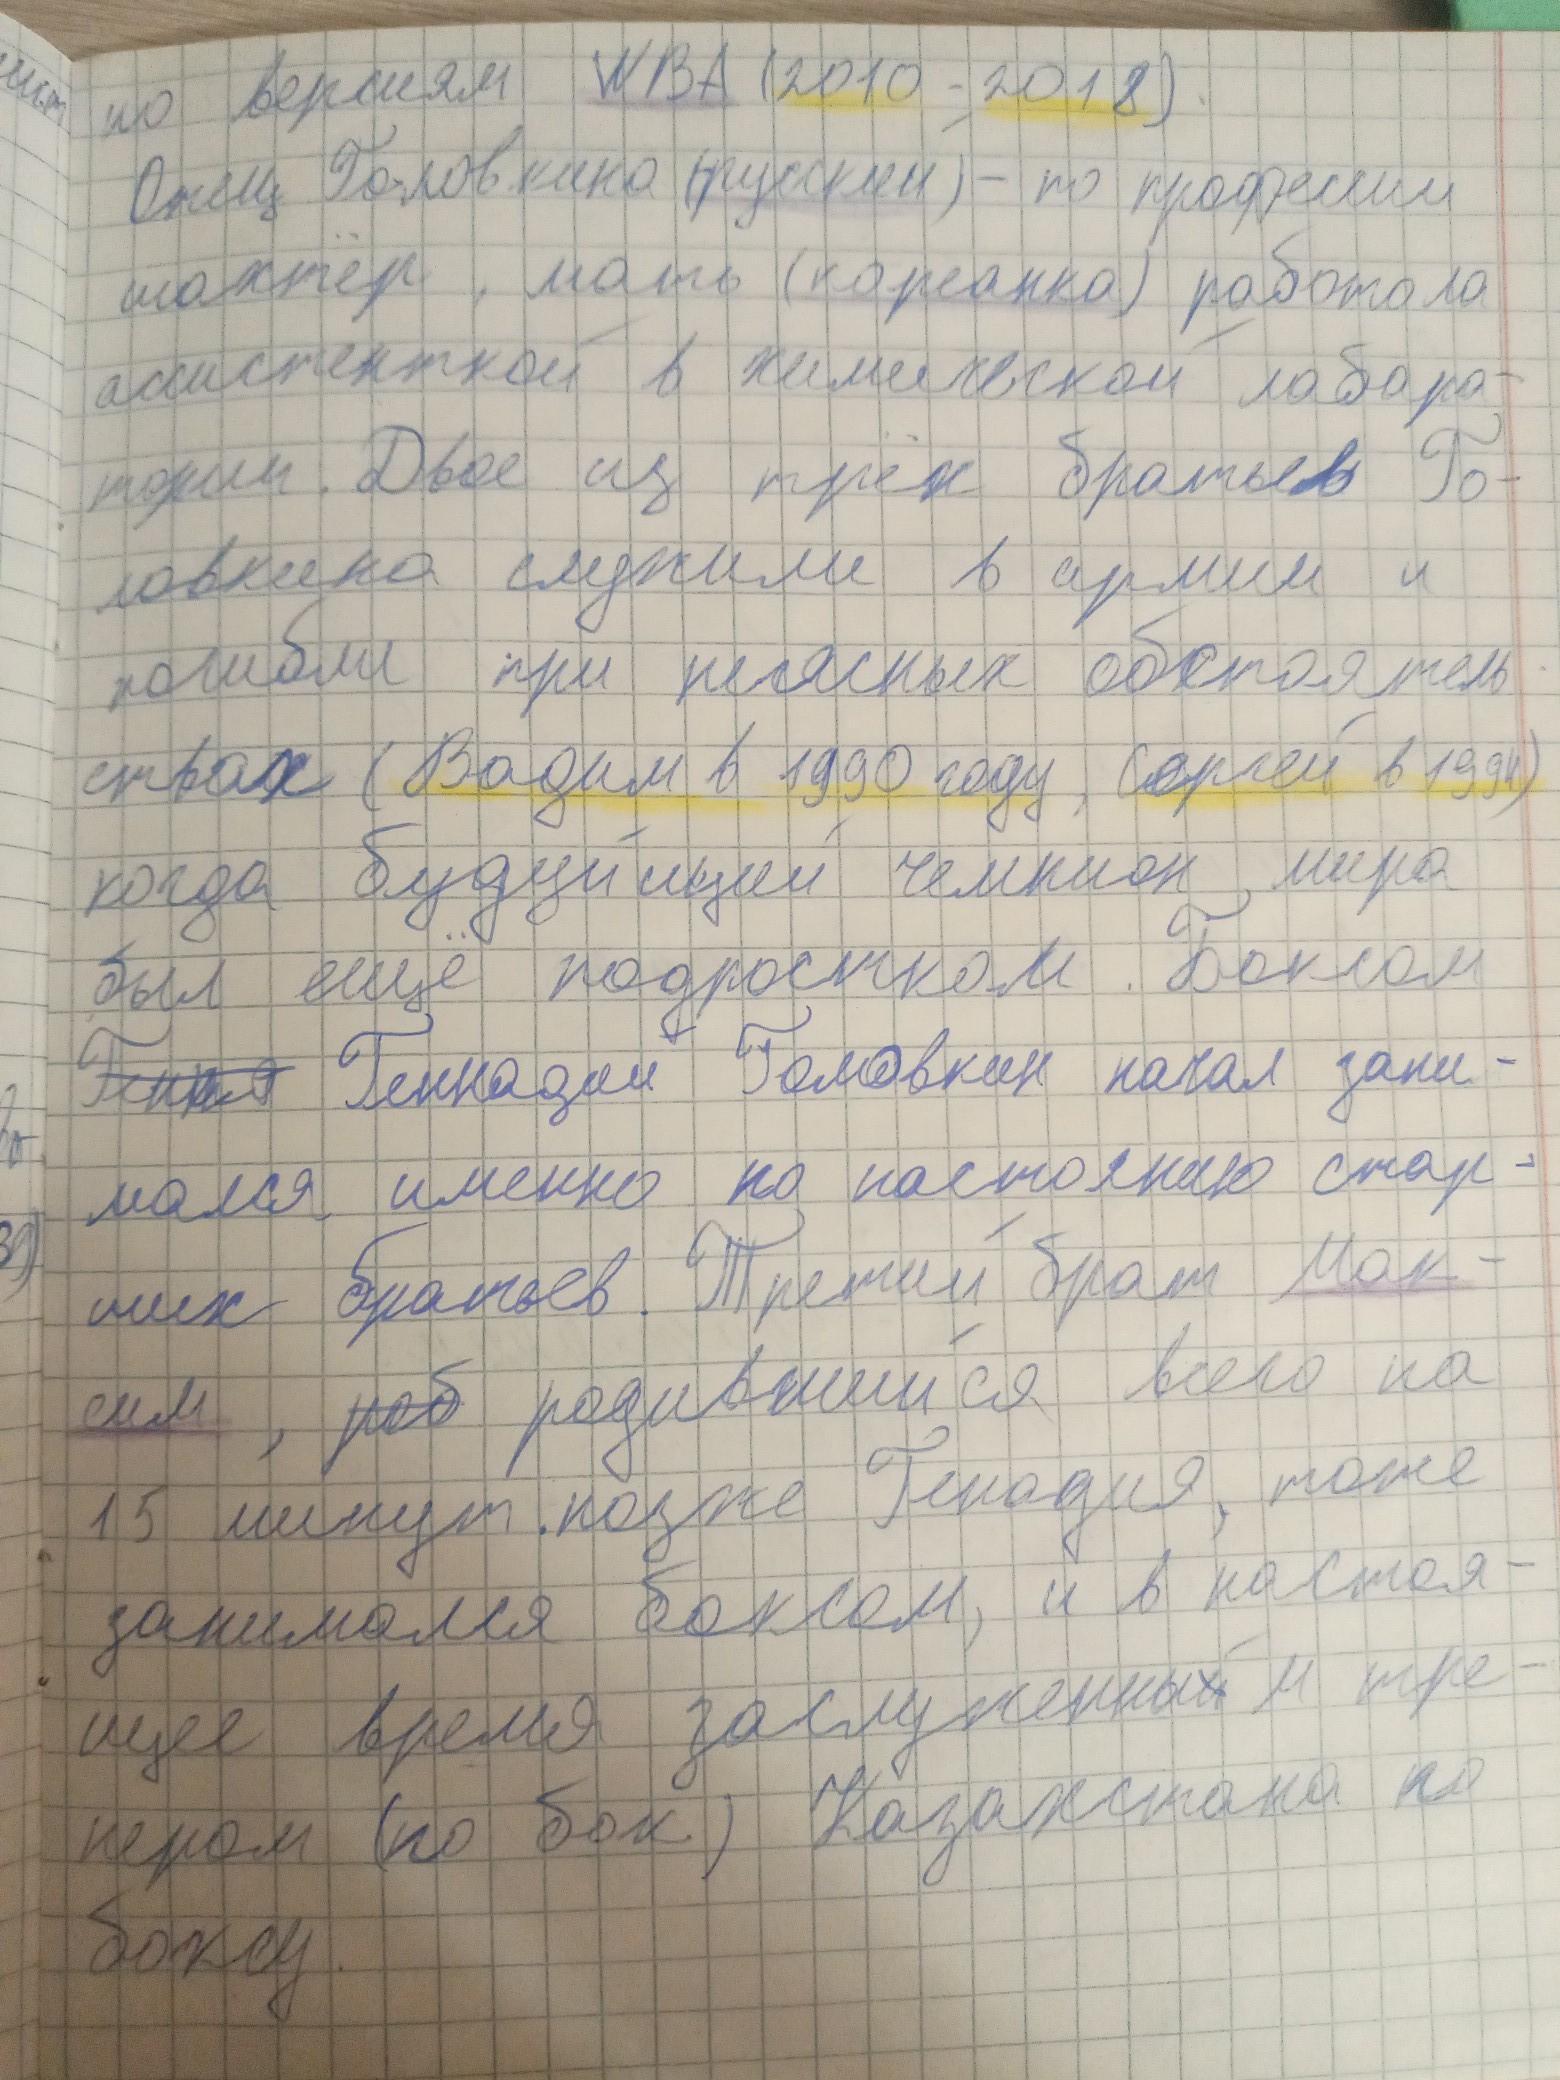 по версиям WBA (2010-2018).
Отец Головкина (русский) – по професии
шахтёр, мать (кореанка) работала
ассистенткой в химической лабара-
тории. Двое из трёх братьев Го-
ловкина служили в армии и
погибли при неясных обстоятель-
ствах (Вадим в 1990 году, Сергей в 1994)
когда будуйищий чемпион мира
был ещё подростком. Боксом
Генния Геннадий Головкин начал зани-
мался именно на настоянию стар-
ших братьев. Третий брат Мак-
сим, роб родившийся всего на
15 минут позже Генадия, тоже
занимался боксом, и в настоя-
щее время заслуженный м тре-
нером (по бок) Казахстана по
боксу.